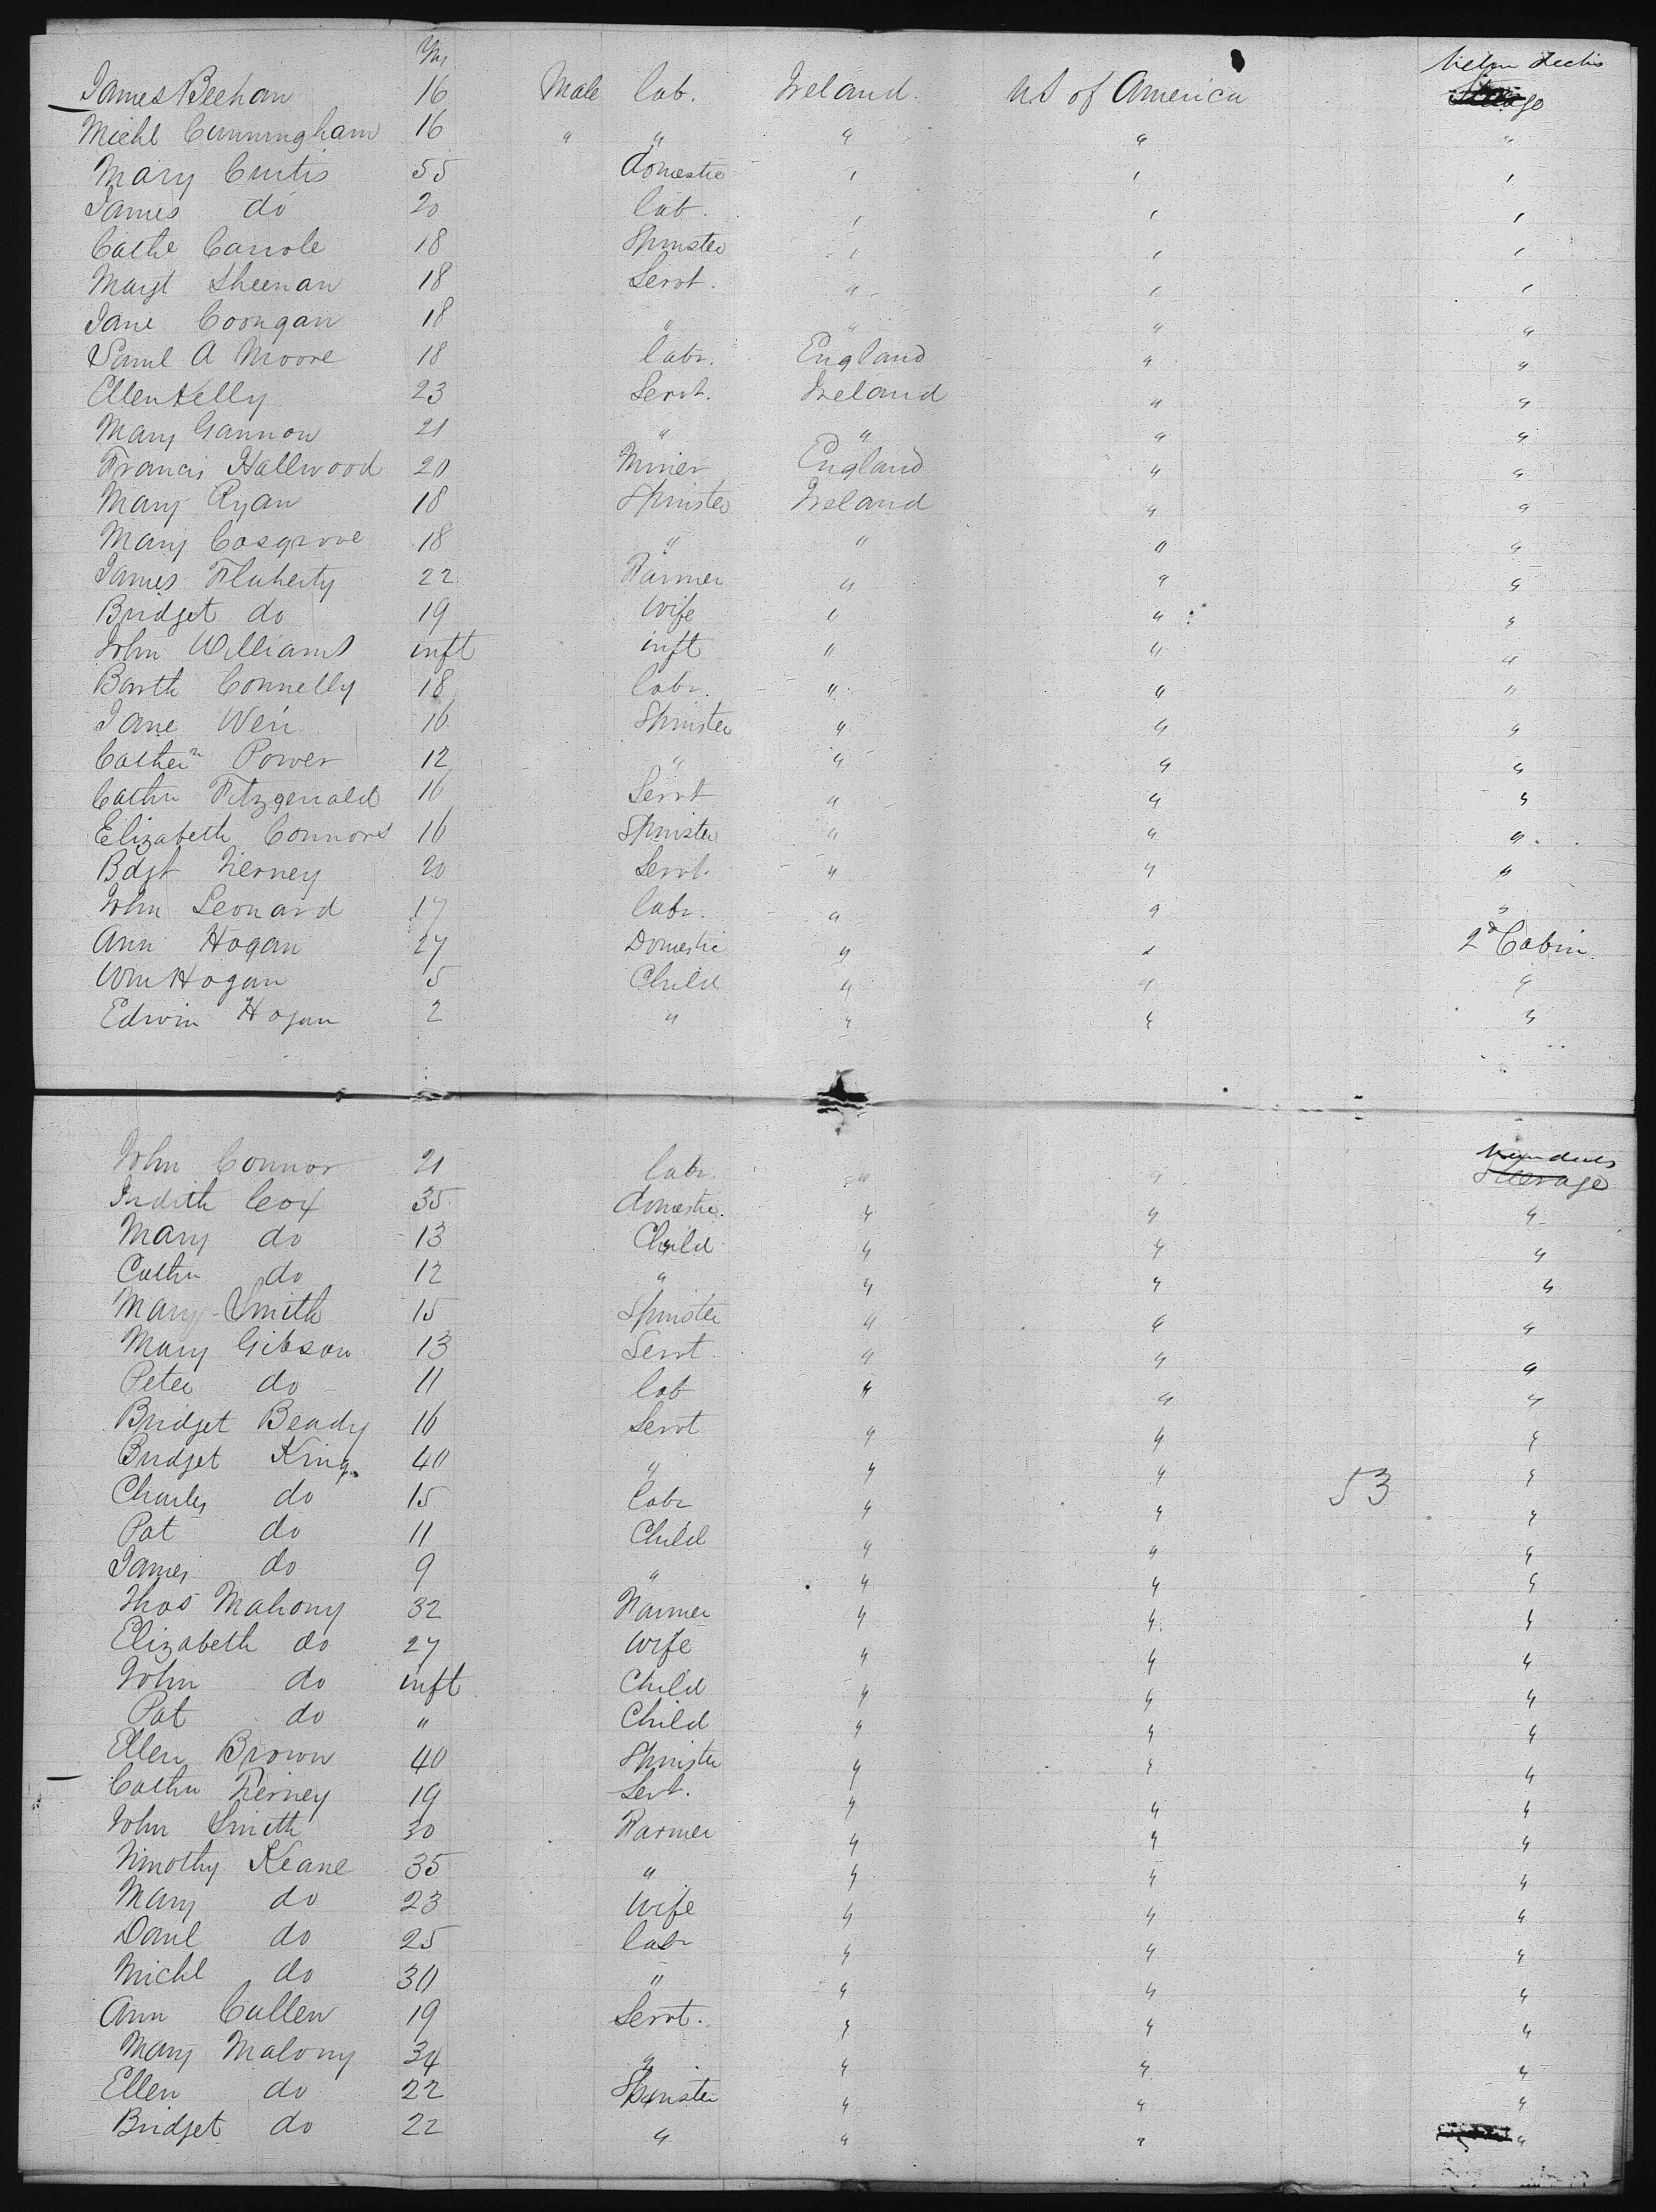 Yrs
James Beehan 16 Male lab. Ireland. US of America between decks Steerage
Michl Cunningham 16 " " " " "
Mary Curtis 55 domestic " " "
James do 20 lab. " " "
Cathe Carrole 18 Spinster " " "
Margt Sheenan 18 Servt. " " "
Jane Coongan 18 " " " "
Saml A Moore 18 labr. England " "
Ellen Kelly 23 Servt. Ireland " "
Mary Gannon 21 " " " "
Francis Hallwood 20 Miner England " "
Mary Ryan 18 Spinster Ireland " "
Mary Cosgrove 18 " " " "
James Flaherty 22 Farmer " " "
Bridget do 19 Wife " " "
John Williams inft inft " " "
Barth Connelly 18 labr. " " "
Jane Weir 16 Spinster " " "
Cather n Power 12 " " " "
Cathn Fitzgerald 16 Servt " " "
Elizabeth Connors 16 Spinster " " "
Bdgt Tierney 20 Servt. " " "
John Leonard 17 labr. " " "
Ann Hogan 27 Domestic " " 2d Cabin
Wm Hogan 5 Child " " "
Edwin Hogan 2 " " " "
John Connor 21 labr. " " Steerage
Judith Cox 35 domestic. " " "
Mary do 13 Child " " "
Cathn do 12 " " " "
Mary Smith 15 Spinster " " "
Mary Gibson 13 Servt " " "
Peter do 11 lab " " "
Bridget Beady 16 Servt " " "
Bridget King 40 " " " "
Charles do 15 labr " " 53 "
Pat do 11 Child " " "
James do 9 " " " "
Thos Mahony 32 Farmer " " "
Elizabeth do 27 Wife " " "
John do inft Child " " "
Pat do " Child " " "
Ellen Brown 40 Spinster " " "
Cathn Tierney 19 Servt. " " "
John Smith 30 Farmer " " "
Timothy Keane 35 " " " "
Mary do 23 Wife " " "
Danl do 25 labr " " "
Michl do 30 " " " "
Ann Cullen 19 Servt. " " "
Mary Malony 34 " " " "
Ellen do 22 Spinster " " "
Bridget do 22 " " " "